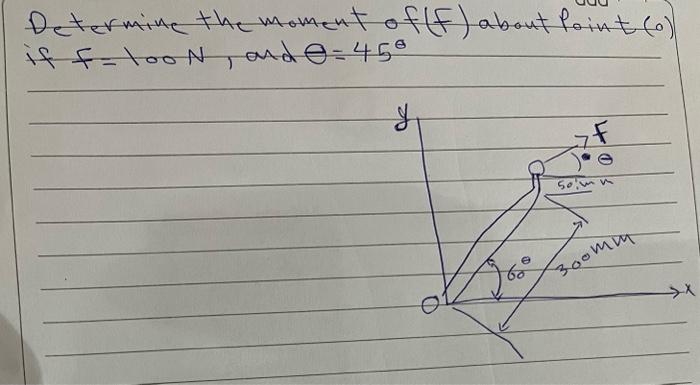 Determine the moment of (F) about Point (o)
if F = 100 N, and θ = 45°
y
F
θ
50 mm
60°
300mm
O
x